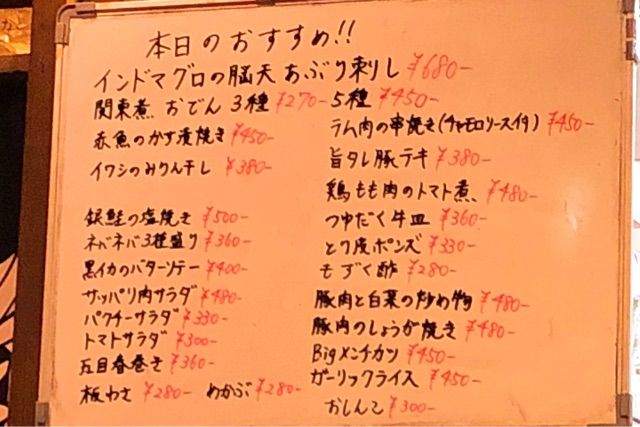 本日のおすすめ!!
インドマグロの脳天あぶり刺し ¥680-
関東煮、おでん 3種 ¥270- 5種 ¥450-
赤魚のかす漬焼き ¥450-
イワシのみりん干し ¥380-
銀鮭の塩焼き ¥500-
ネバネバ3種盛り ¥360-
黒イカのバターソテー ¥400-
サッパリ肉サラダ ¥480-
パクチーサラダ ¥330-
トマトサラダ ¥300-
五目春巻き ¥360-
板わさ ¥280- めかぶ ¥280-
ラム肉の串焼き(チャモロソース付) ¥450-
旨タレ豚テキ ¥380-
鶏もも肉のトマト煮、 ¥480-
つゆだく牛皿 ¥360-
とり皮ポンズ ¥330-
もずく酢 ¥280-
豚肉と白菜の炒め物 ¥480-
豚肉のしょうが焼き ¥480-
Bigメンチカツ ¥450-
ガーリックライス ¥450-
おしんこ ¥300-